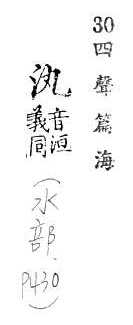 30四聲篇海
音洹
義同
(水部.P430)